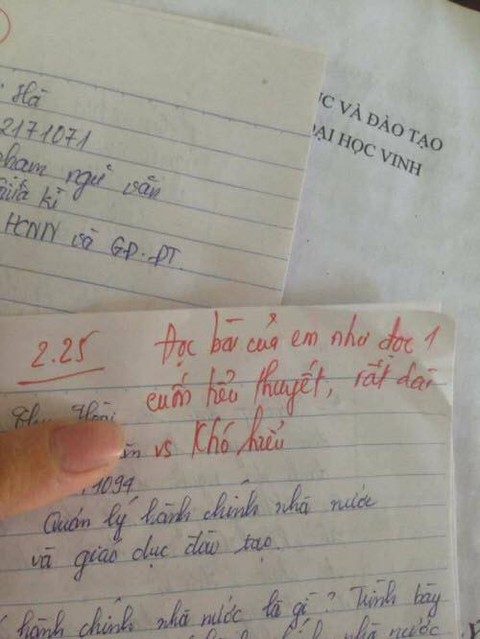 Hà
2171071
phạm ngữ văn
giữa kì
HCNN và GD-ĐT.
ỤC VÀ ĐÀO TẠO
ĐẠI HỌC VINH
2.25
Đọc bài của em như đọc 1
cuốn tiểu thuyết, rất dài
vs khó hiểu
Hoài
1094
Quản lý hành chính nhà nước
và giáo dục đào tạo.
hành chính nhà nước là gì? Trình bày
hành chính nhà nước